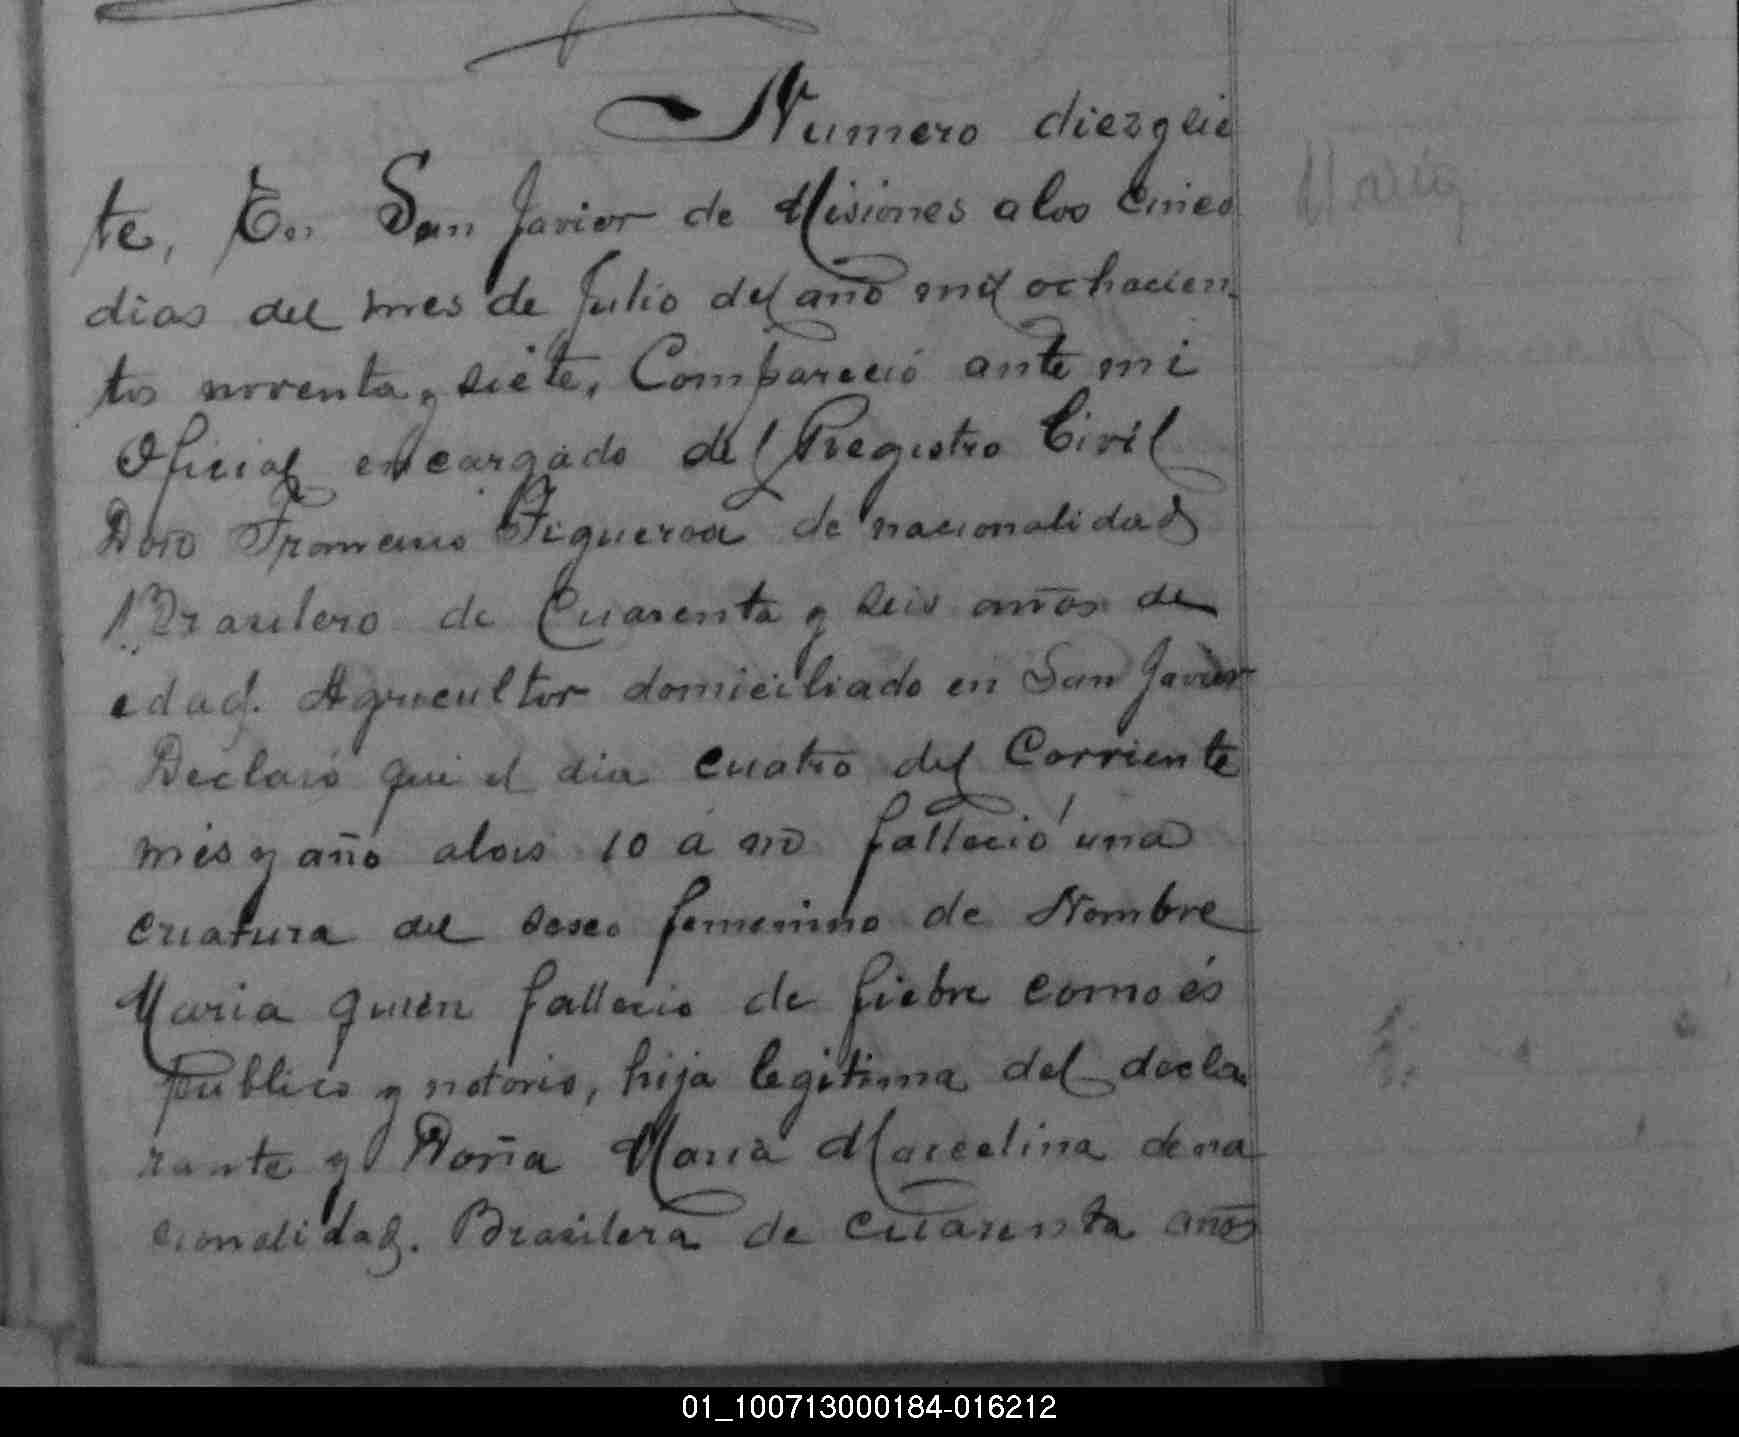 Numero diezysie
te, En San Javier de Misiones a los Cinco
dias del mes de Julio del año mil ochocien
tos noventa y siete, Compareció ante mi
Oficial encargado del Registro Civil
Don Figueroa de nacionalidad
Brasilero de Cuarenta y seis años de
edad. Agricultor domiciliado en San Javier
Declaró que el dia cuatro del Corriente
mes y año alos 10 a m falleció una
criatura del sexo femenino de Nombre
Maria quien fallecio de fiebre como és
publico y notorio, hija legitima del decla
rante y Doña Maria Marcelina de na
cionalidad. Brasilera de cuarenta años
Maria
01_100713000184-016212